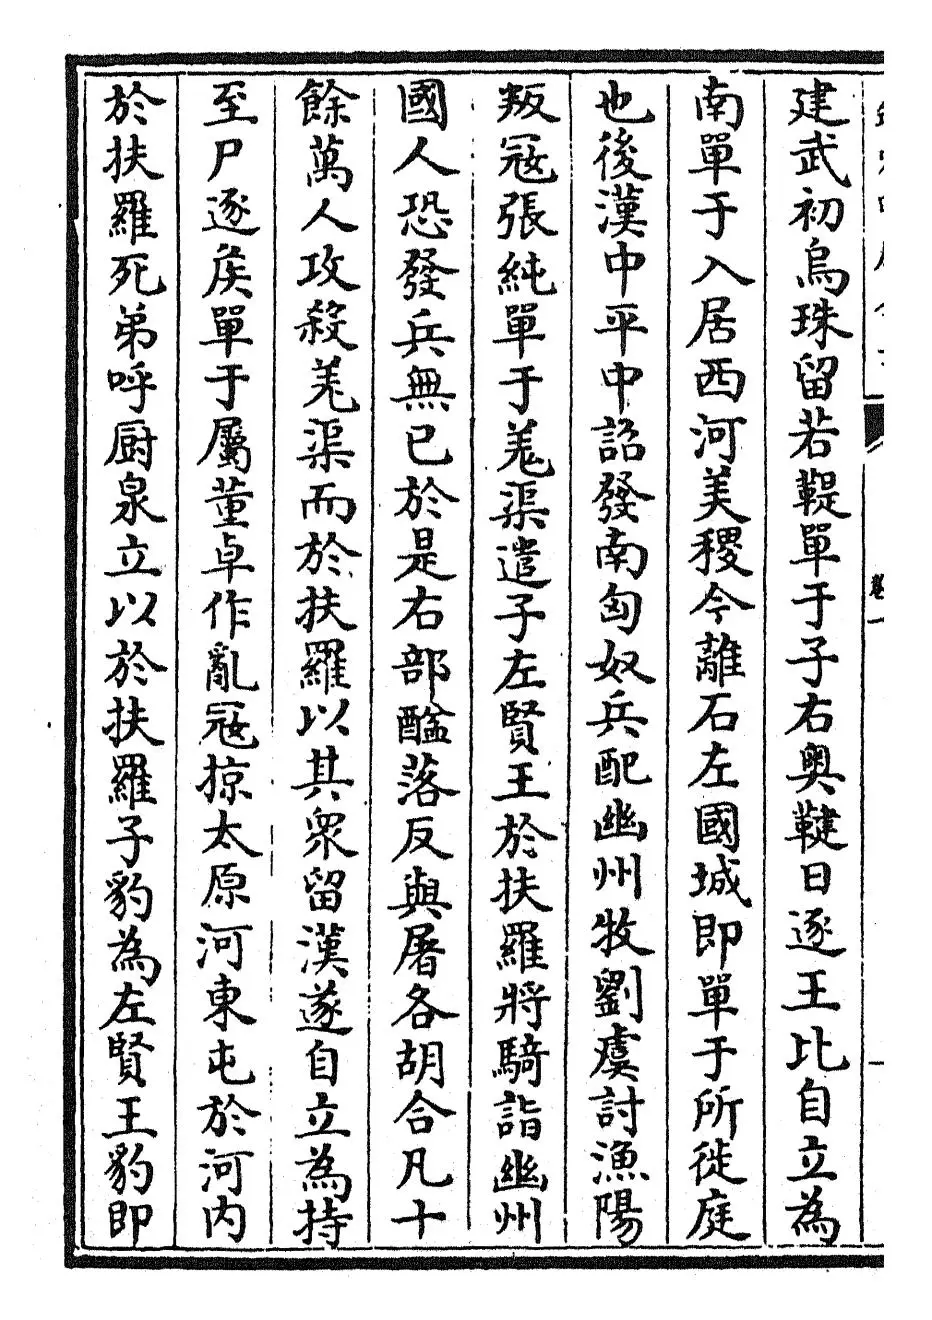 建武初烏珠留若鞮單于子右奧鞬日逐王比自立為
南單于入居西河美稷今離石左國城即單于所徙庭
也後漢中平中詔發南匈奴兵配幽州牧劉虞討漁陽
叛冦張純單于羗渠遣子左賢王於扶羅將騎詣幽州
國人恐發兵無已於是右部醢落反與屠各胡合凡十
餘萬人攻殺羗渠而於扶羅以其衆留漢遂自立為持
至尸逐矦單于屬董卓作亂冦掠太原河東屯於河内
於扶羅死弟呼厨泉立以於扶羅子豹為左賢王豹即